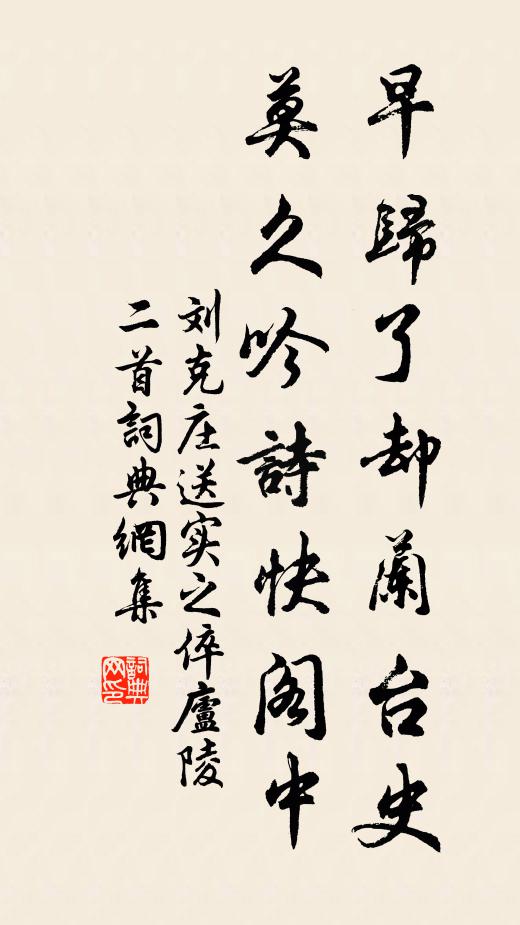 早歸了却蘭台史
莫久吟詩快阁中
刘克庄送实之倅廬陵
二首詞典網集
詞典网印